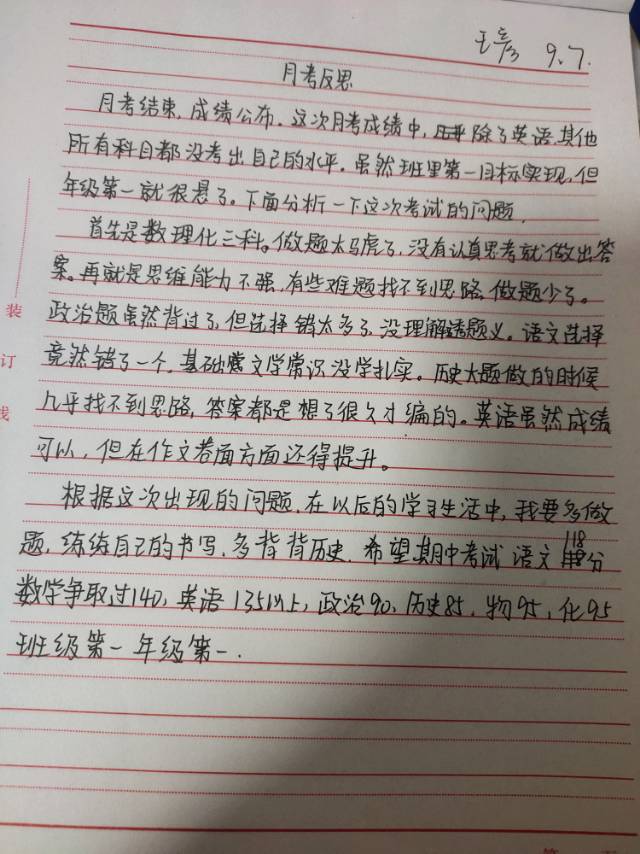 王彦 9.7.
月考反思
月考结束,成绩公布。这次月考成绩中,除了英语,其他
所有科目都没考出自己的水平。虽然班里第一目标实现,但
年级第一就很悬了。下面分析一下这次考试的问题。
首先是数理化三科。做题太马虎了,没有认真思考就做出答
案。再就是思维能力不强,有些难题找不到思路,做题少了。
政治题虽然背过了,但选择错太多了,没理解透题义。语文选择
竟然错了一个,基础文学常识没学扎实。历史大题做的时候
几乎找不到思路,答案都是想了很久才编的。英语虽然成绩
可以,但在作文卷面方面还得提升。
根据这次出现的问题,在以后的学习生活中,我要多做
题,练练自己的书写,多背背历史。希望期中考试语文118分
数学争取过140,英语135以上,政治90,历史85,物95,化95
班级第一年级第一.
装
订
线